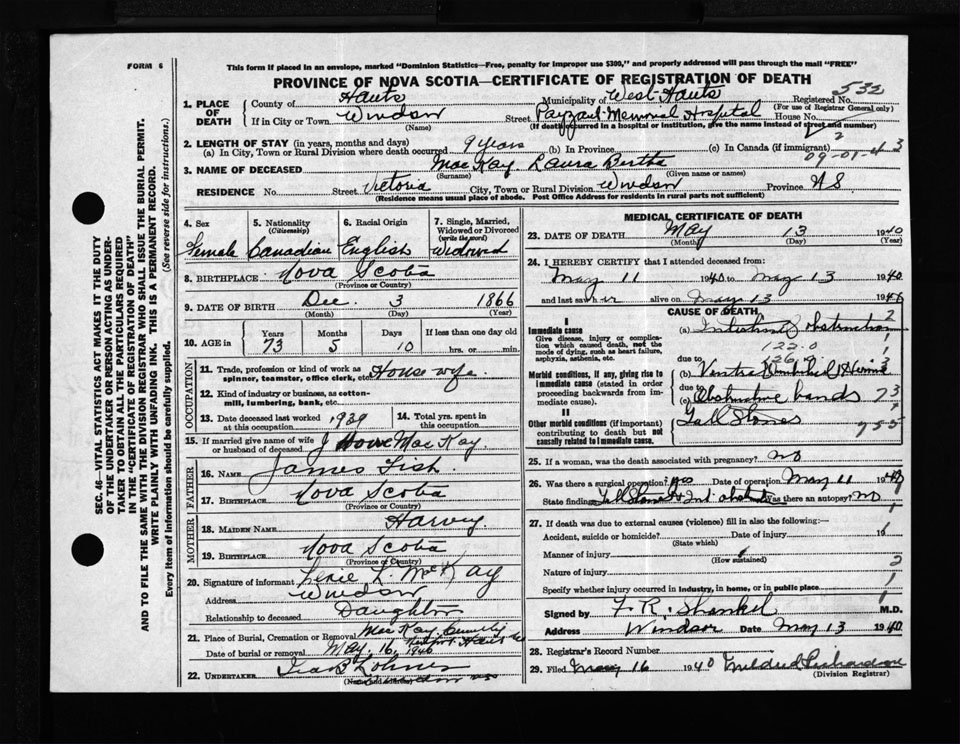 FORM 6
This form if placed in an envelope, marked "Dominion Statistics—Free, penalty for improper use $300," and properly addressed will pass through the mail "FREE"
PROVINCE OF NOVA SCOTIA—CERTIFICATE OF REGISTRATION OF DEATH
532
1. PLACE OF DEATH
County of Hants Municipality of West Hants Registered No.
(For use of Registrar General only)
If in City or Town Windsor Street Payzant Memorial Hospital House No.
(Name) (If death occurred in a hospital or institution, give the name instead of street and number)
2. LENGTH OF STAY (in years, months and days)
(a) In City, Town or Rural Division where death occurred 9 years (b) In Province (c) In Canada (if immigrant)
09-01-43
3. NAME OF DECEASED MacKay Laura Bertha
(Surname) (Given name or names)
RESIDENCE No. Street Victoria City, Town or Rural Division Windsor Province N.S.
(Residence means usual place of abode. Post Office Address for residents in rural parts not sufficient)
SEC. 46—VITAL STATISTICS ACT MAKES IT THE DUTY
OF THE UNDERTAKER OR PERSON ACTING AS UNDER-
TAKER TO OBTAIN ALL THE PARTICULARS REQUIRED
IN THE "CERTIFICATE OF REGISTRATION OF DEATH"
AND TO FILE THE SAME WITH THE DIVISION REGISTRAR WHO SHALL ISSUE THE BURIAL PERMIT.
WRITE PLAINLY WITH UNFADING INK. THIS IS A PERMANENT RECORD.
Every item of Information should be carefully supplied. (See reverse side for instructions.)
4. Sex 5. Nationality 6. Racial Origin 7. Single, Married,
(Citizenship) Widowed or Divorced
(write the word)
Female Canadian English Widowed
8. BIRTHPLACE Nova Scotia
(Province or Country)
9. DATE OF BIRTH Dec. 3 1866
(Month) (Day) (Year)
10. AGE in Years Months Days If less than one day old
73 5 10 hrs. or min.
OCCUPATION
11. Trade, profession or kind of work as
spinner, teamster, office clerk, etc. House wife
12. Kind of industry or business, as cotton-
mill, lumbering, bank, etc.
13. Date deceased last worked at this occupation 1939 14. Total yrs. spent in this occupation
15. If married give name of wife
or husband of deceased J Howe MacKay
FATHER
16. NAME James Fish
17. BIRTHPLACE Nova Scotia
(Province or Country)
MOTHER
18. MAIDEN NAME Harvey
19. BIRTHPLACE Nova Scotia
(Province or Country)
20. Signature of informant L. MacKay
Address Windsor
Relationship to deceased Daughter
21. Place of Burial, Cremation or Removal MacKay
Date of burial or removal May. 16, 1940
22. UNDERTAKER
MEDICAL CERTIFICATE OF DEATH
23. DATE OF DEATH May 13 1940
(Month) (Day) (Year)
24. I HEREBY CERTIFY that I attended deceased from:
May 11 1940 to May 13 1940
and last saw her alive on May 13 1940
CAUSE OF DEATH
I
Immediate cause
Give disease, injury or complica-
tion which caused death, not the
mode of dying, such as heart failure,
asphyxia, asthenia, etc.
(a) Intestinal obstruction
122.0
due to
Morbid conditions, if any, giving rise to
immediate cause (stated in order
proceeding backwards from im-
mediate cause).
(b) Ventral Umbilical Hernia
due to
(c) Obstructive bands
II
Other morbid conditions (if important)
contributing to death but not
causally related to immediate cause.
Gall Stones
25. If a woman, was the death associated with pregnancy? no
26. Was there a surgical operation? Yes Date of operation May 11 1940
State finding Gall Stones Was there an autopsy? no
27. If death was due to external causes (violence) fill in also the following:—
Accident, suicide or homicide? Date of injury 19
(State which)
Manner of injury
(How sustained)
Nature of injury
Specify whether injury occurred in Industry, in home, or in public place
Signed by F. R. Shankel M.D.
Address Windsor Date May 13 1940
28. Registrar's Record Number
29. Filed May 16 1940 Mildred Richardson
(Division Registrar)